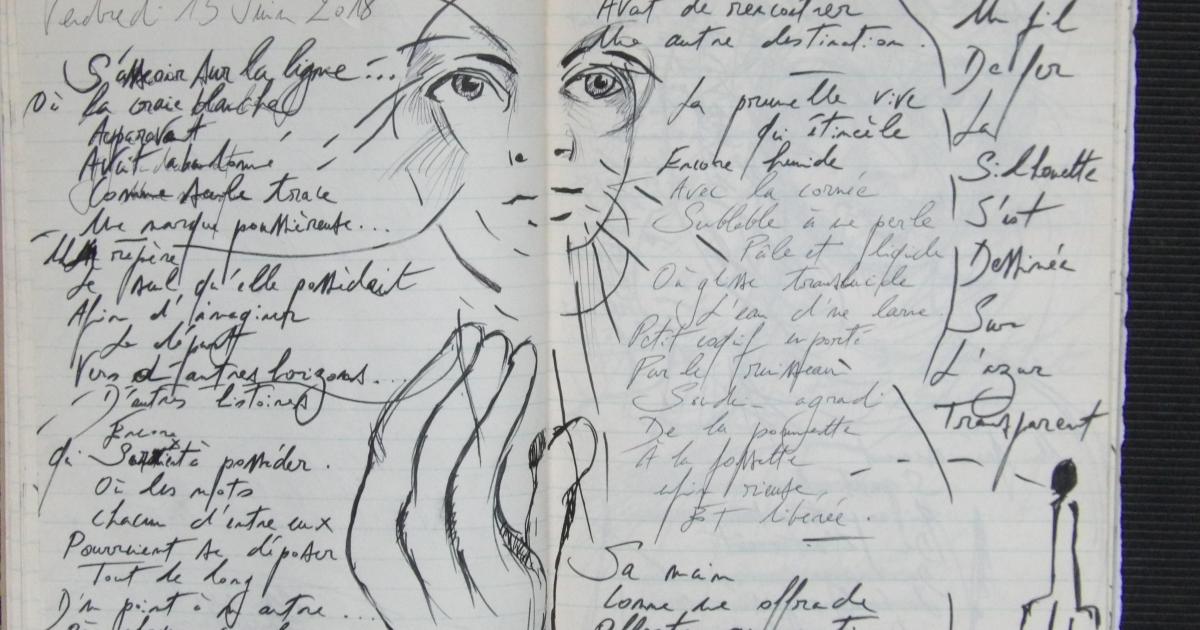 Vendredi 15 Juin 2018
S'asseoir sur la ligne...
Où la craie blanche
Auparavant
Avait abandonné
Comme seule trace
Une marque poussièreuse...
Un repère
Le seul qu'elle possédait
Afin d'imaginer
Le départ
Vers d'autres horizons...
D'autres histoires
Encore
à posséder.
Où les mots
Chacun d'entre eux
Pourraient se déposer
Tout le long
D'un point à un autre...
Avat de rencontrer
Une autre destination.
La prunelle vive
Qui étincèle
Encore humide
Avec la cornée
à une perle
Pâle et
Où glisse translucide
L'eau d'une larme.
Petit emporté
Par le ruisseau
De la pommette
À la fossette
enfin rieuse
Est libérée.
Sa main
Comme une offrande
Un fil
De fer
La
Silhouette
S'est
Dessinée
Sur
L'azur
Transparent